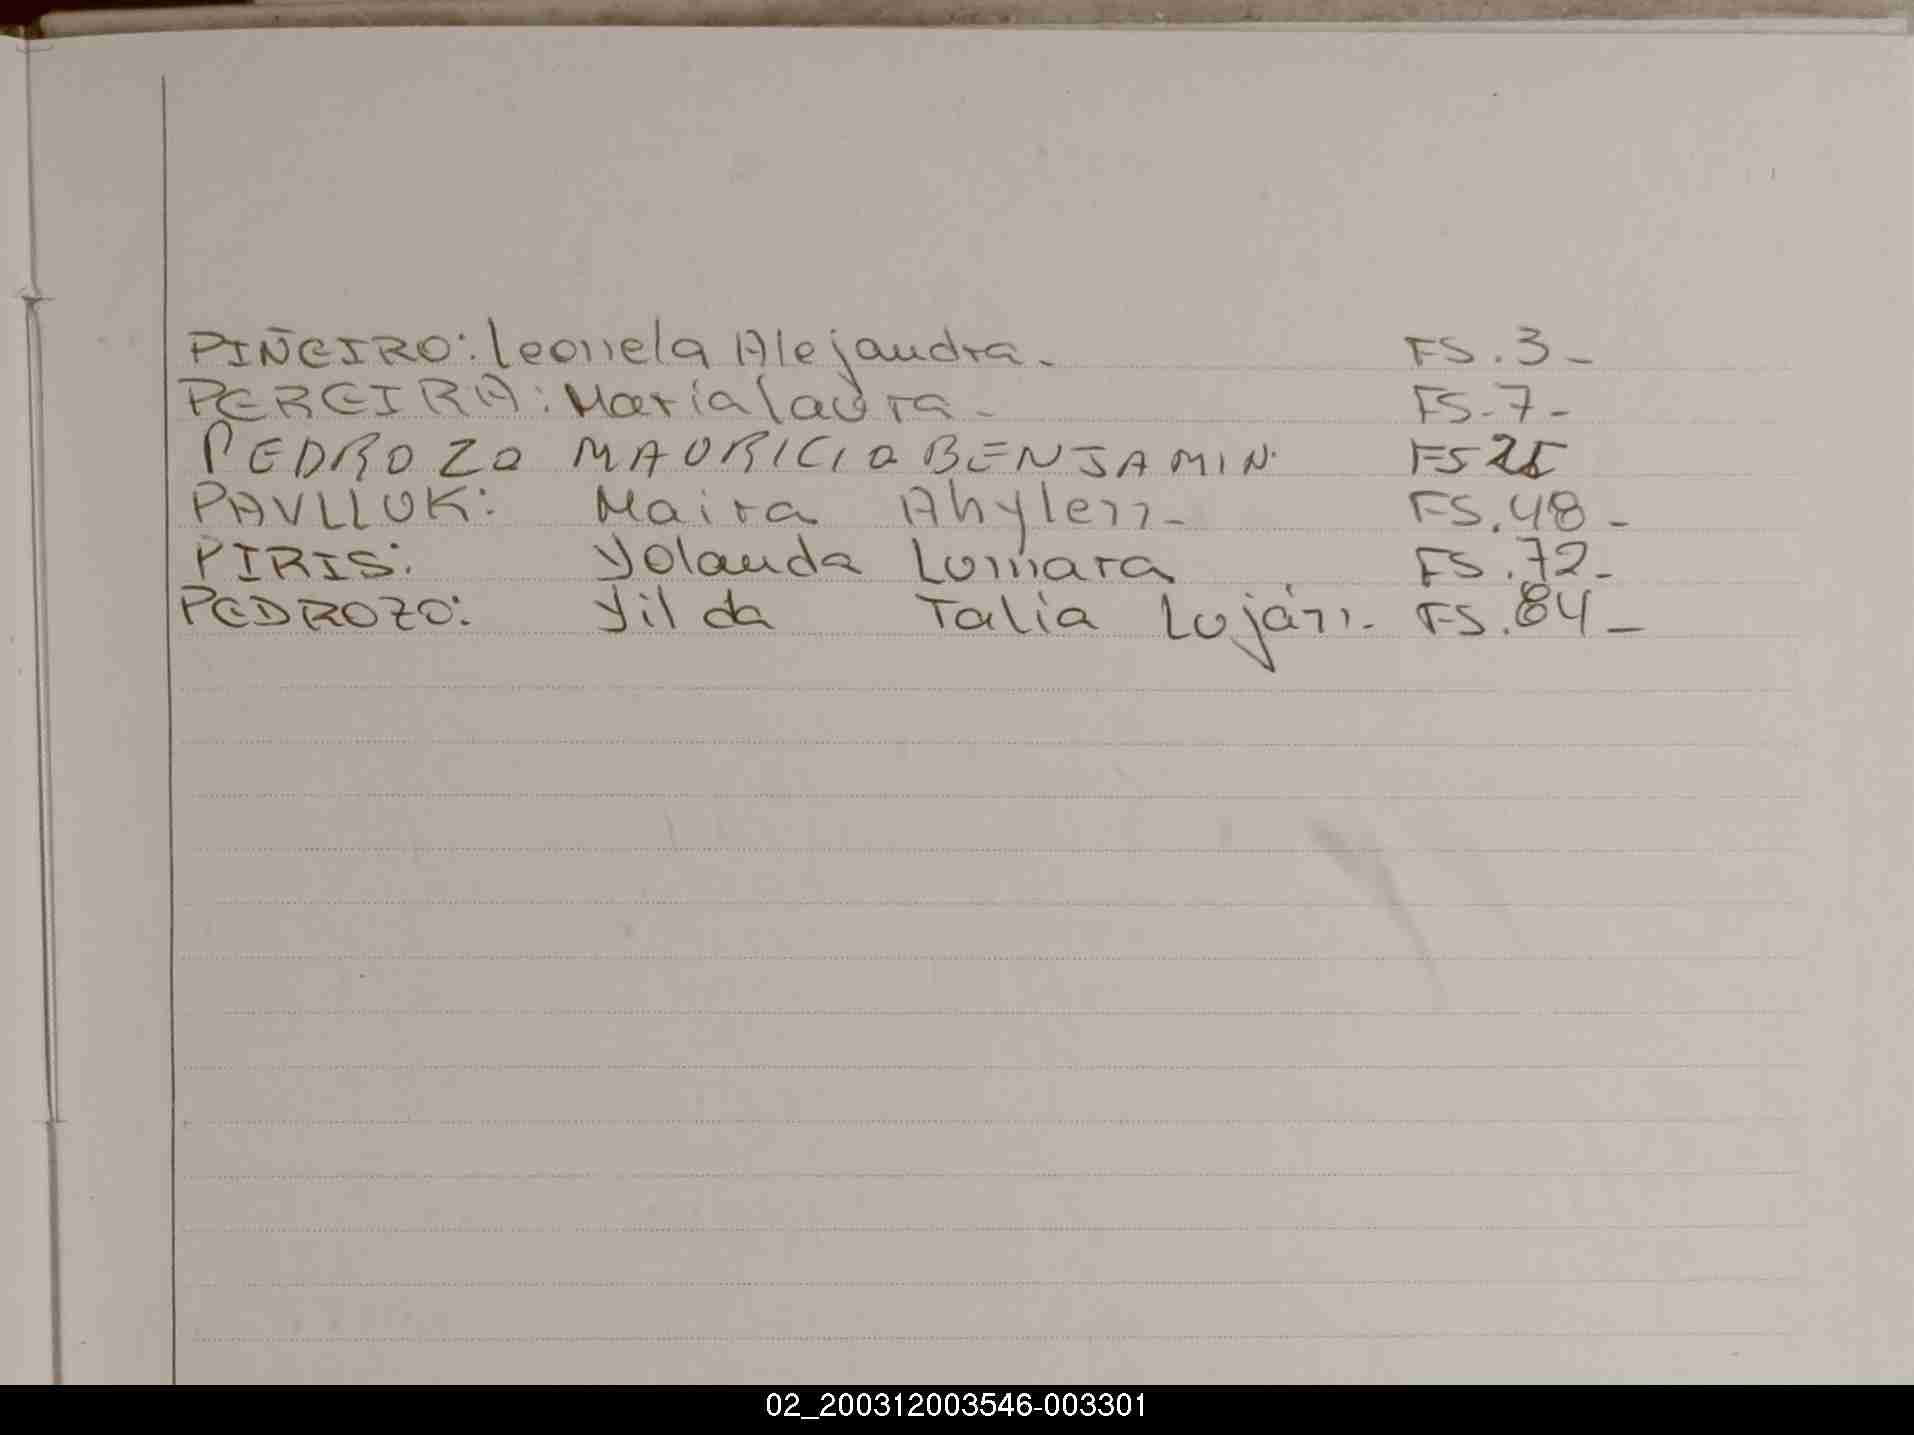 PIÑEIRO: Leonela Alejandra. FS. 3 -
PEREIRA: Maria Laura - FS - 7 -
PEDROZO MAURICIO BENJAMIN. FS 25
PAVLLUK: Maira Ahylen - FS. 48 -
PIRIS: Yolanda Lumara FS. 72 -
PEDROZO: Yilda Talia Luján - FS. 84 -
02_200312003546-003301